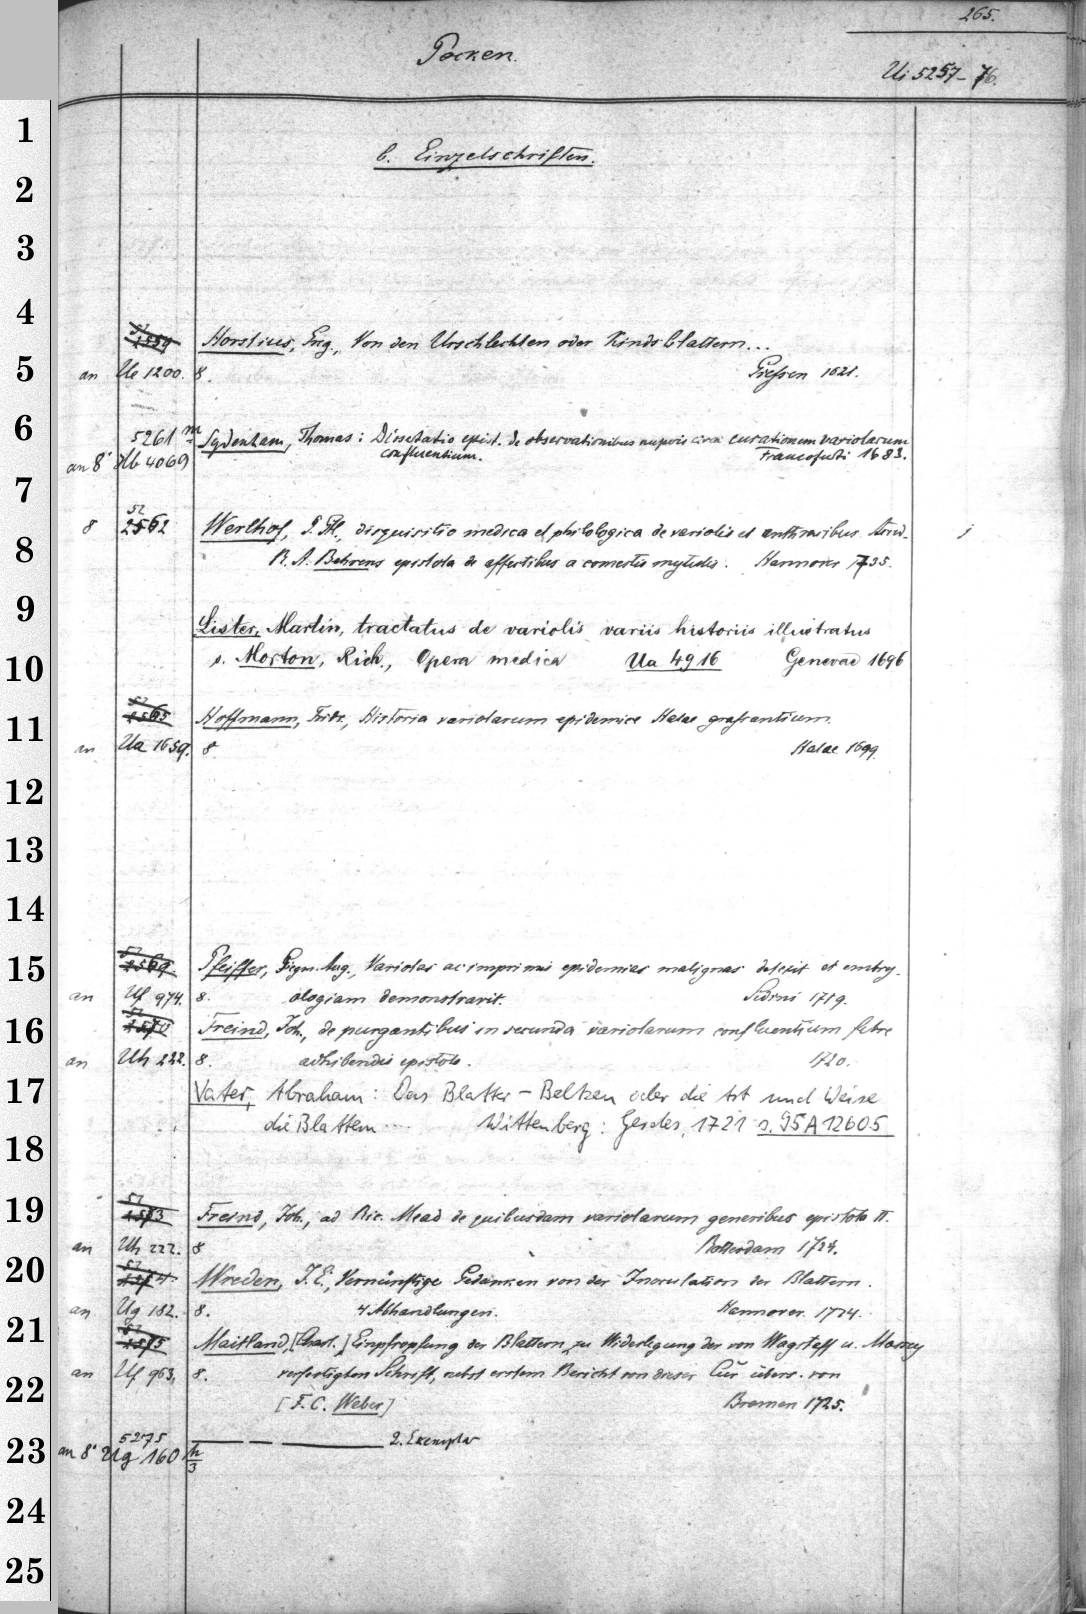 265.
Pocken.
Ui 5257-76.
1
b. Einzelschriften.
2
3
4
Horstius, Greg., Von den Urschlechten oder Kindsblattern...
5
an Ue 1200. 8. Giessen 1621.
6
5261 m Sydenham, Thomas: Dissertatio epist. de observationibus nuperis circa curationem variolarum
an 8° 4069 confluentium. Francofurti 1683.
7
8 52 2562 Werlhof, P. Th., disquisitio medica et philologica de variolis et anthracibus.
8
R. A. Behrens epistola de affectibus a comestis mytulis. Hannover 1735.
9
Lister, Martin, tractatus de variolis variis historiis illustratus
10
s. Morton, Rich., Opera medica Ua 4916 Genevae 1696
11
52 2565 Hoffmann, Fridr., Historia variolarum epidemice Halae grassantium.
an Ua 1659. 8. Halae 1699.
12
13
14
15
52 2569 Pfeiffer, Sigm. Aug., Variolas ac imprimis epidemias malignas detexit et embry-
an Uf 974. 8. ologiam demonstravit. 1719.
16
52 2570 Freind, Joh., de purgantibus in secunda variolarum confluentium febre
an Uh 222. 8. adhibendis epistola. 1720.
17
Vater, Abraham: Das Blatter-Beltzen oder die Art und Weise
die Blattern.... Wittenberg: Gerdes, 1721 s. 95 A 12605
18
19
52 2573 Freind, Joh., ad Ric. Mead de quibusdam variolarum generibus epistola II.
an Uh 222. 8 Rotterdam 1724.
20
52 2574 Wreden, J. E., Vernünftige Gedanken von der Inoculation der Blattern.
an Ug 182. 8. 4 Abhandlungen. Hannover 1724.
21
52 2575 Maitland, [Charl.] Einpfropfung der Blattern, zu Widerlegung der von Wagsteff u. Massey
an Uf 963. 8. verfertigten Schrift, nebst erstem Bericht von dieser Cur übers. von
22
[F. C. Weber] Bremen 1725.
23
5275 — — — 2. Exemplar
an 8° Ug 160 h/3
24
25